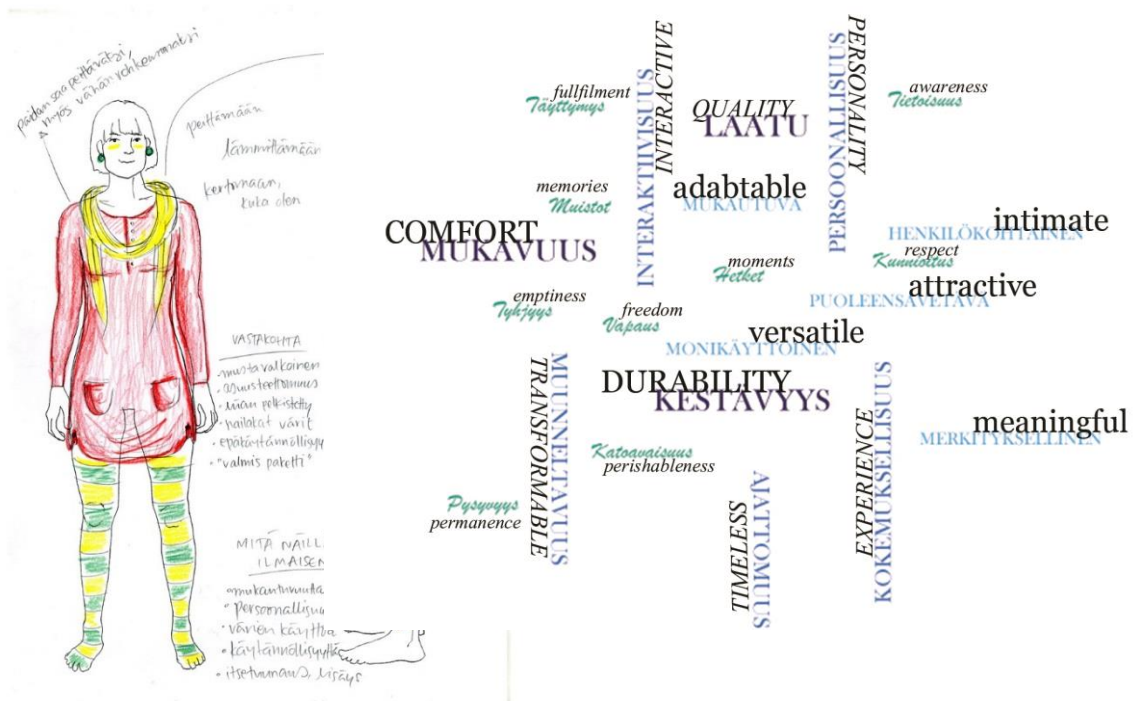 paidan saa peittäväksi,
myös vähän rohkeammaksi
peittämään
lämmittämään
kertomaan,
kuka olen
VASTAKOHTA
• mustavalkoinen
• asusteettomuus
• liian pelkistetty
• hailakat värit
• epäkäytännöllisyy
• "valmis paketti"
MITÄ NÄILL
ILMAISEN
• mukautumista
• persoonallisuu
• värien käyttöä
• käytännöllisyyttä
• itsetunnous, lisäys
fullfilment
Täyttymys
INTERACTIVE
INTERAKTIIVISUUS
QUALITY
LAATU
PERSONALITY
PERSOONALLISUUS
awareness
Tietoisuus
memories
Muistot
adabtable
MUKAUTUVA
COMFORT
MUKAVUUS
intimate
HENKILÖKOHTAINEN
respect
Kunnioitus
moments
Hetket
attractive
PUOLEENSAVETÄVÄ
emptiness
Tyhjyys
freedom
Vapaus
versatile
MONIKÄYTTÖINEN
DURABILITY
KESTÄVYYS
TRANSFORMABLE
MUUNNELTAVUUS
EXPERIENCE
KOKEMUKSELLISUUS
meaningful
MERKITYKSELLINEN
Katoavaisuus
perishableness
Pysyvyys
permanence
TIMELESS
AJATTOMUUS